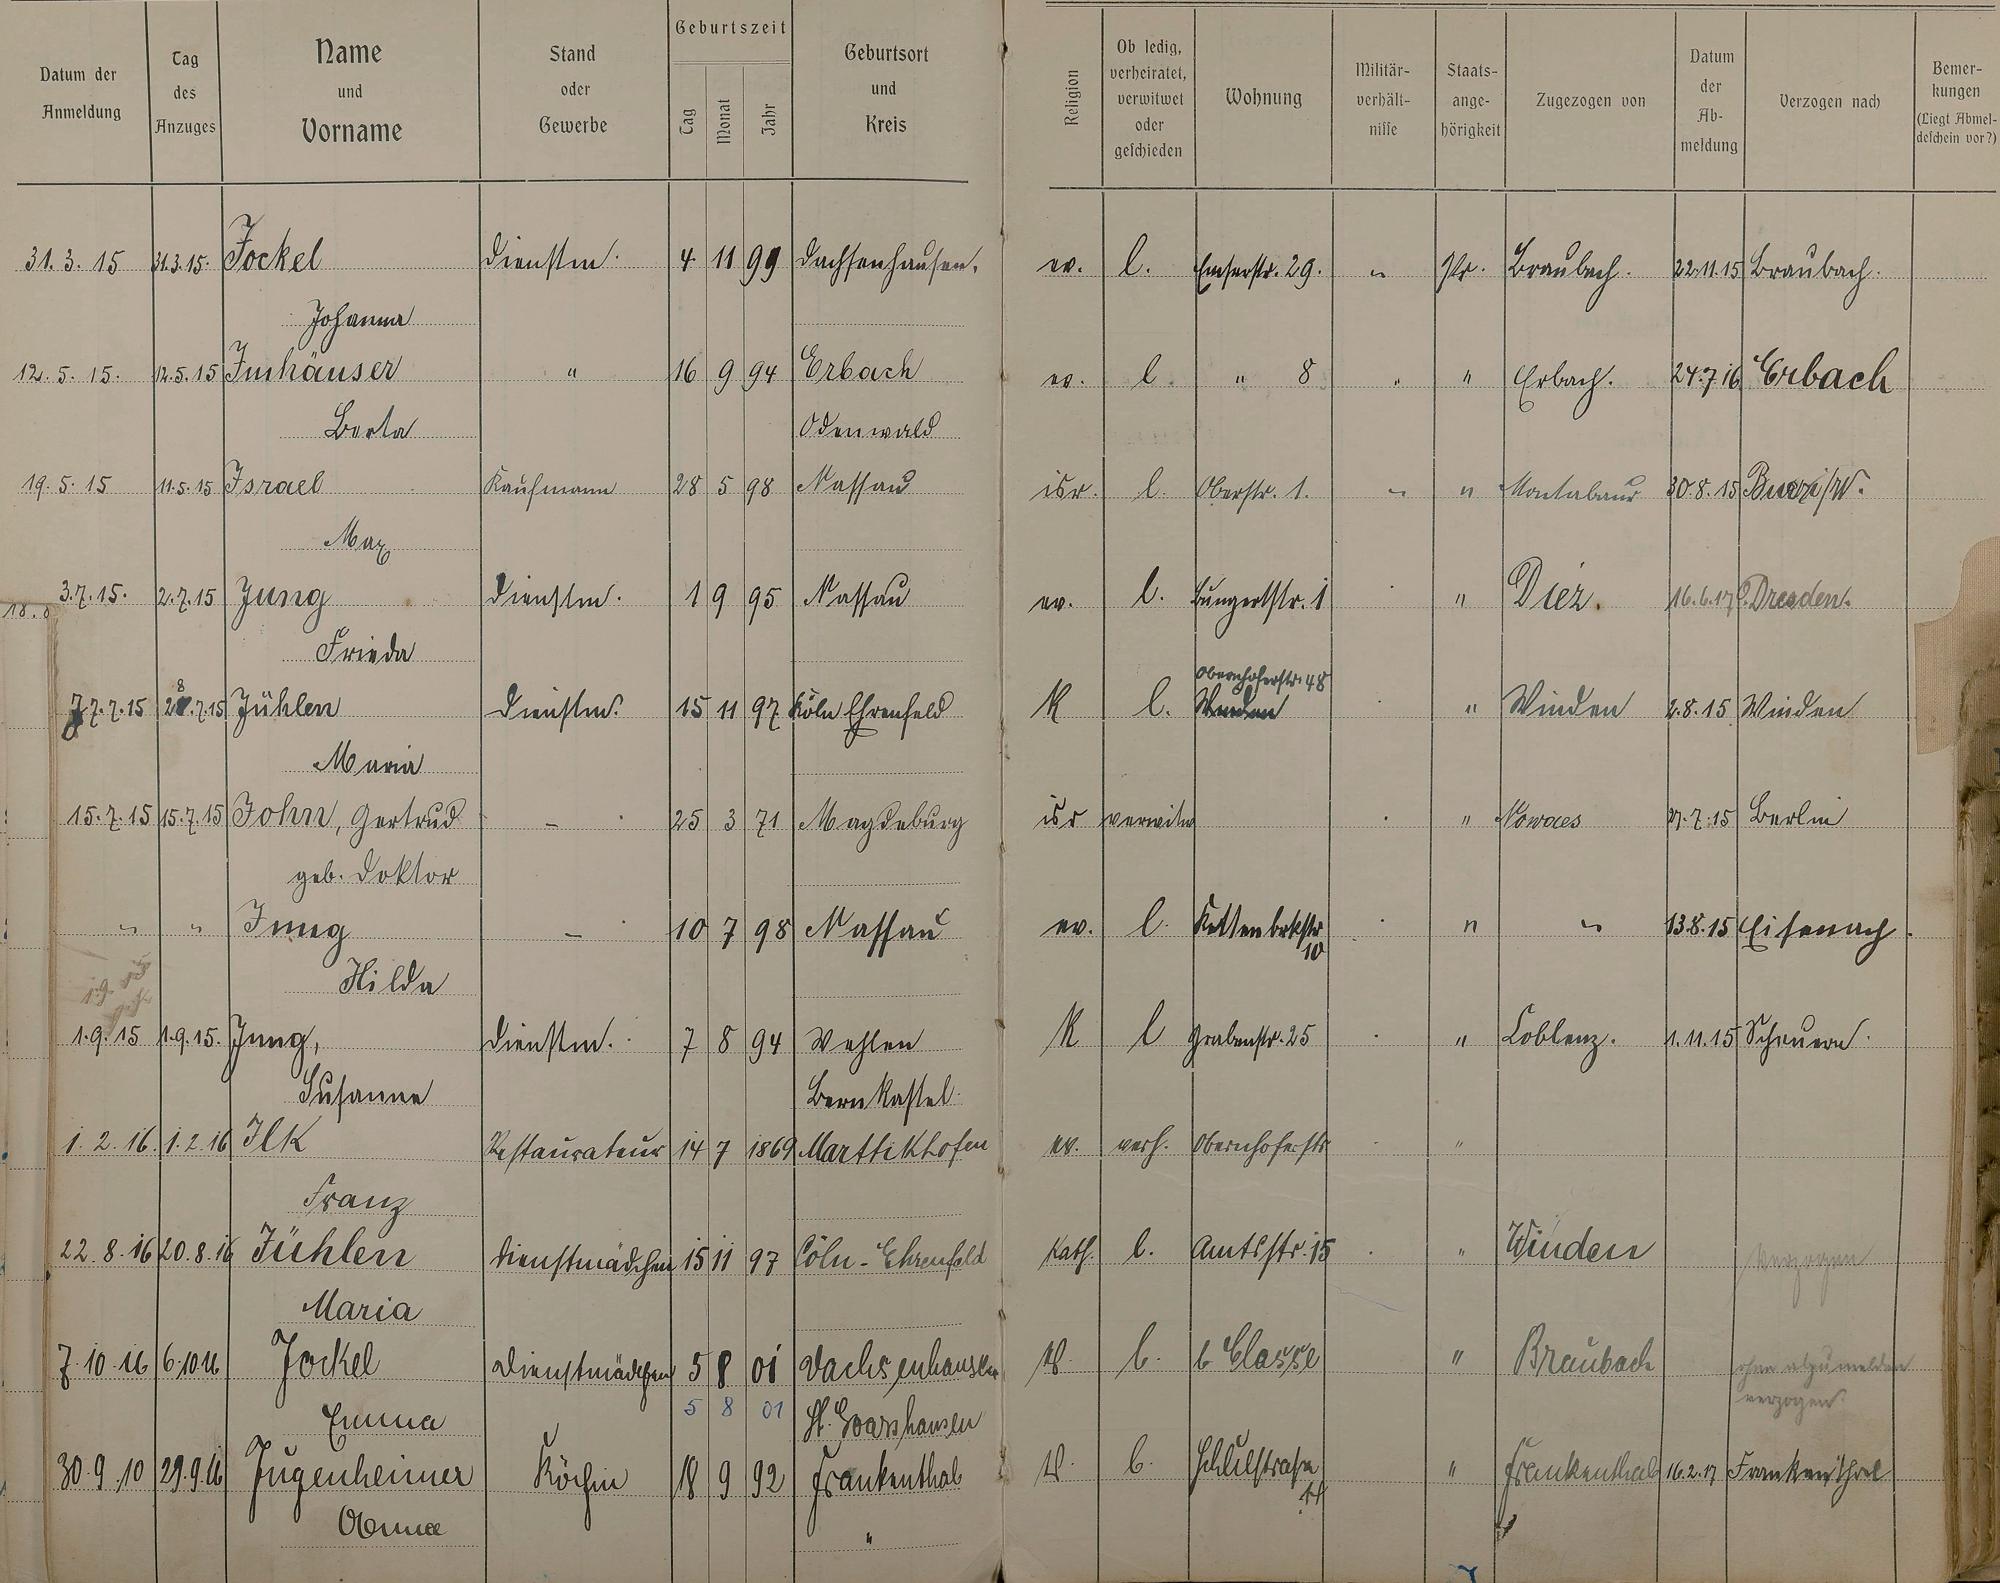 Datum der Anmeldung
Tag des Anzuges
Name und Vorname
Stand oder Gewerbe
Geburtszeit
Tag Monat Jahr
Geburtsort und Kreis
Religion
Ob ledig, verheiratet, verwitwet oder geschieden
Wohnung
Militär-verhält-nisse
Staats-ange-hörigkeit
Zugezogen von
Datum der Ab-meldung
Verzogen nach
Bemer-kungen (Liegt Abmel-deschein vor?)
31. 3. 15 31.3.15. Jockel Dienstm. 4 11 99 Dachsenhausen. ev. l. Emserstr. 29. " Pr. Braubach. 22.11.15 Braubach.
Johanna
12. 5. 15. 12.5.15 Imhäuser " 16 9 94 Erbach ev. l " 8 " " Erbach. 24.7 16 Erbach
Berta Odenwald
19. 5. 15 11.5.15 Israel Kaufmann 28 5 98 Nassau isr. l. Oberstr. 1. " " Montabaur 30.8.15
Max
18.
3.7.15. 2.7.15 Jung Dienstm. 1 9 95 Nassau ev. l. Bungertstr. 1 " Diez. 16.6.17 Dresden.
Frieda
Obernhoferstr. 48
7.7.15 28.7.15 Jühlen Dienstm. 15 11 97 Köln Ehrenfeld K l. Winden " Winden 2.8.15 Winden
Maria
15.7.15 15.7.15 John, Gertrud – 25 3 71 Magdeburg isr verwitw " Nowaes 27.7.15 Berlin
geb. Doktor
" " Jung – 10 7 98 Nassau ev. l. Kettenbrkstr 10 " " 13.8.15 Eisenach.
Hilda
1.9.15 1.9.15. Jung, Dienstm. 7 8 94 Wehlen K l Grabenstr. 25 " Coblenz. 1.11.15 Scheuern.
Susanne Bernkastel.
1. 2. 16. 1.2.16 Ilk Restaurateur 14 7 1869 Marttikhofen ev. verh. Obernhoferstr "
Franz
22. 8. 16 20.8.16 Jühlen Dienstmädchen 15 11 97 Cöln-Ehrenfeld Kath. l. Amtsstr. 15 " Winden verzogen
Maria
7. 10. 16 6.10.16 Jockel Dienstmädchen 5 8 01 Dachsenhausen l. b Classe " Braubach ohne abzumelden
verzogen.
Emma 5 8 01 St. Goarshausen
30. 9. 10 29.9.16 Jugenheimer Köchin 18 9 92 Frankenthal l. Schulstrasse " Frankenthal 16.2.17 Frankenthal
Anna "